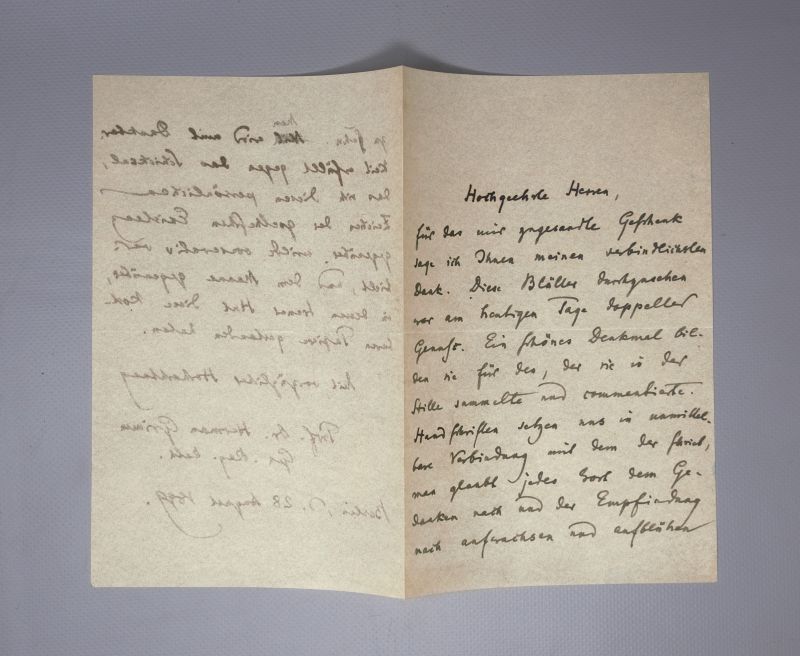 Hochgeehrte Herren,
für das mir zugesandte Geschenk
sage ich Ihnen meinen verbindlichsten
Dank. Diese Blätter durchzusehen
war am heutigen Tage doppelter
Genuß. Ein schönes Denkmal bil-
den sie für den, der sie in der
Stille sammelte und commentierte.
Handschriften setzen uns in unmittel-
bare Verbindung mit dem der schrieb,
man glaubt jedes Wort dem Ge-
danken nach und der Empfindung
nach aufwachsen und aufblühen
zu sehn. Man wird mit Dankbar
keit erfüllt gegen das Schicksal,
das sich diesen persönlichen
Zeichen der goetheschen Existenz
gegenüber milde conservativ ver
hielt, und dem Manne gegenüber,
in dessen treuer Hut diese kost
baren Papiere gestanden haben.
Mit vorzüglicher Hochachtung
Prof. Dr. Herman Grimm
Gh. Reg. Rath.
Berlin, d. 28 August 1899.